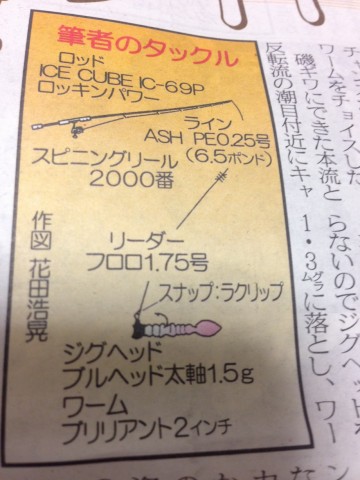 筆者のタックル
ロッド
ICE CUBE IC-69P
ロッキンパワー
ライン
ASH PE0.25号
(6.5ポンド)
スピニングリール
2000番
リーダー
フロロ1.75号
スナップ:ラクリップ
ジグヘッド
ブルヘッド太軸1.5g
ワーム
ブリリアント2インチ
作図 花田浩晃
ワームをチョイスした
磯ギワにできた本流と
反転流の潮目付近にキャ
らないのでジグヘ
1・3グラムに落とし、ワー